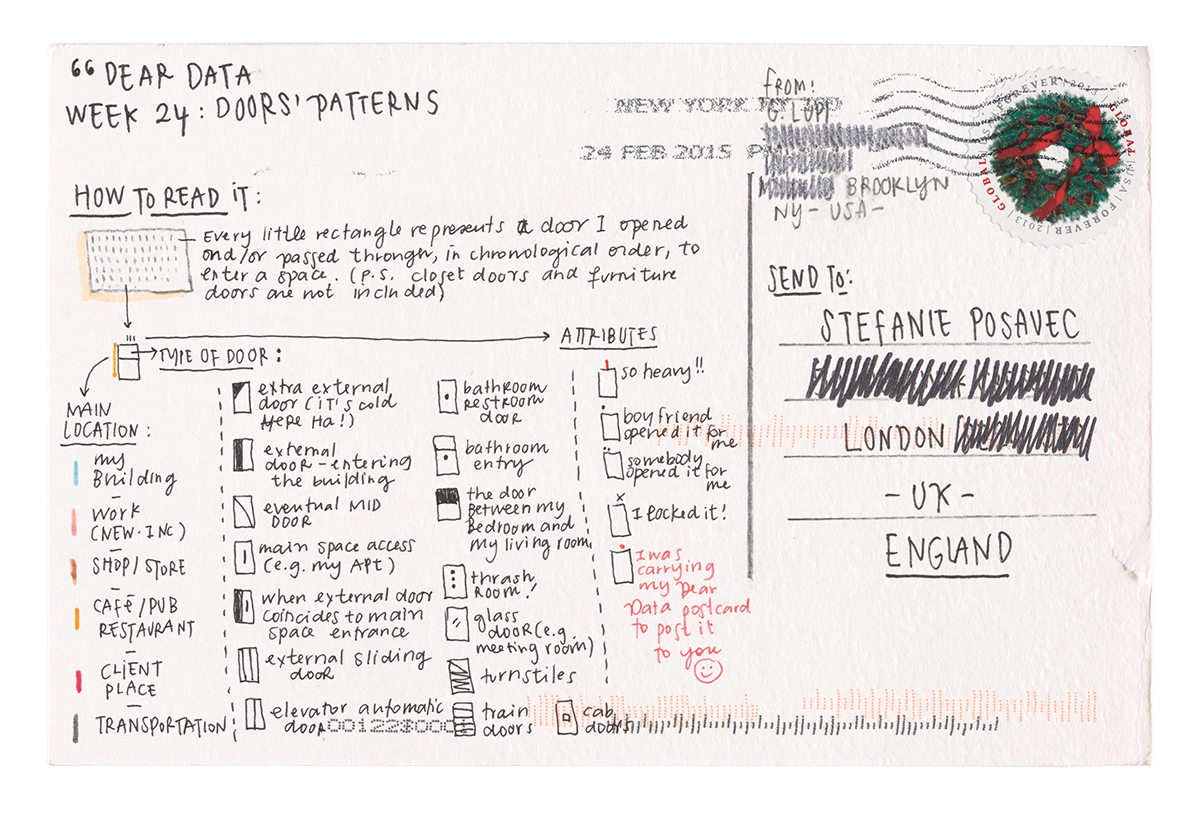 “ DEAR DATA
WEEK 24: DOORS' PATTERNS
NEW YORK NY
24 FEB 2015 PM
FROM:
G. LUPI
BROOKLYN
NY - USA -
GLOBAL | USA | FOREVER | 2013 | GLOBAL | USA | FOREVER | 2013
HOW TO READ IT:
Every little rectangle represents a door I opened
and/or passed through, in chronological order, to
enter a space. (P.S. closet doors and furniture
doors are not included)
TYPE OF DOOR:
ATTRIBUTES
MAIN
LOCATION:
my
Building
-
WORK
(NEW.INC)
-
SHOP/STORE
-
CAFÉ/PUB
RESTAURANT
-
CLIENT
PLACE
-
TRANSPORTATION
extra external
door (iT's cold
Here Ha!)
external
door - entering
the building
eventual MID
DOOR
main space access
(e.g. my APt)
when external door
coincides to main
space entrance
external sliding
door
elevator automatic
door
bathroom
restroom
door
bathroom
entry
the door
between my
Bedroom and
my living room
thrash
room!
glass
door (e.g.
meeting room)
turnstiles
train
doors
cab
doors
so heavy!!
boyfriend
opened it for
me
somebody
opened it for
me
I locked it!
I was
carrying
my Dear
Data postcard
to post it
to you
SEND TO:
STEFANIE POSAVEC
LONDON
- UK -
ENGLAND